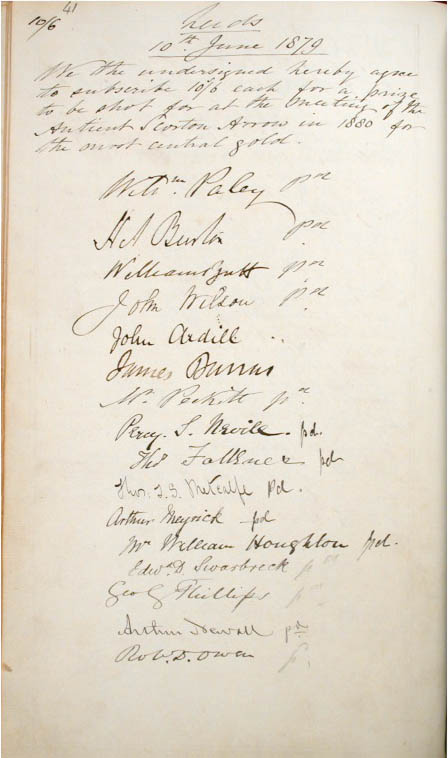 41
10/6
Leeds
10th. June 1879
We the undersigned hereby agree
to subscribe 10/6 each for a prize
to be shot for at the meeting of the
Antient Scorton Arrow in 1880 for
the most central gold.
Willm. Paley pd
Burton pd
William Butt pd
John Wilson pd
John Ardill
James Burras
Mr. Peckitt pd.
Percy. S. Nevile. pd.
Thos Falkner pd
Thos. T. S. Metcalfe Pd.
Arthur Meyrick pd
Mr William Houghton pd.
Edwd. D. Swarbreck pd
Geo G Phillips pd
Arthur Newall pd
Robt. D. Owen pd.